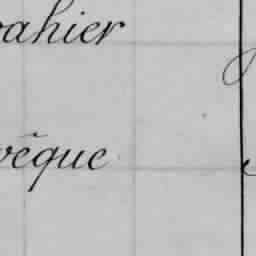 ahier
vêque